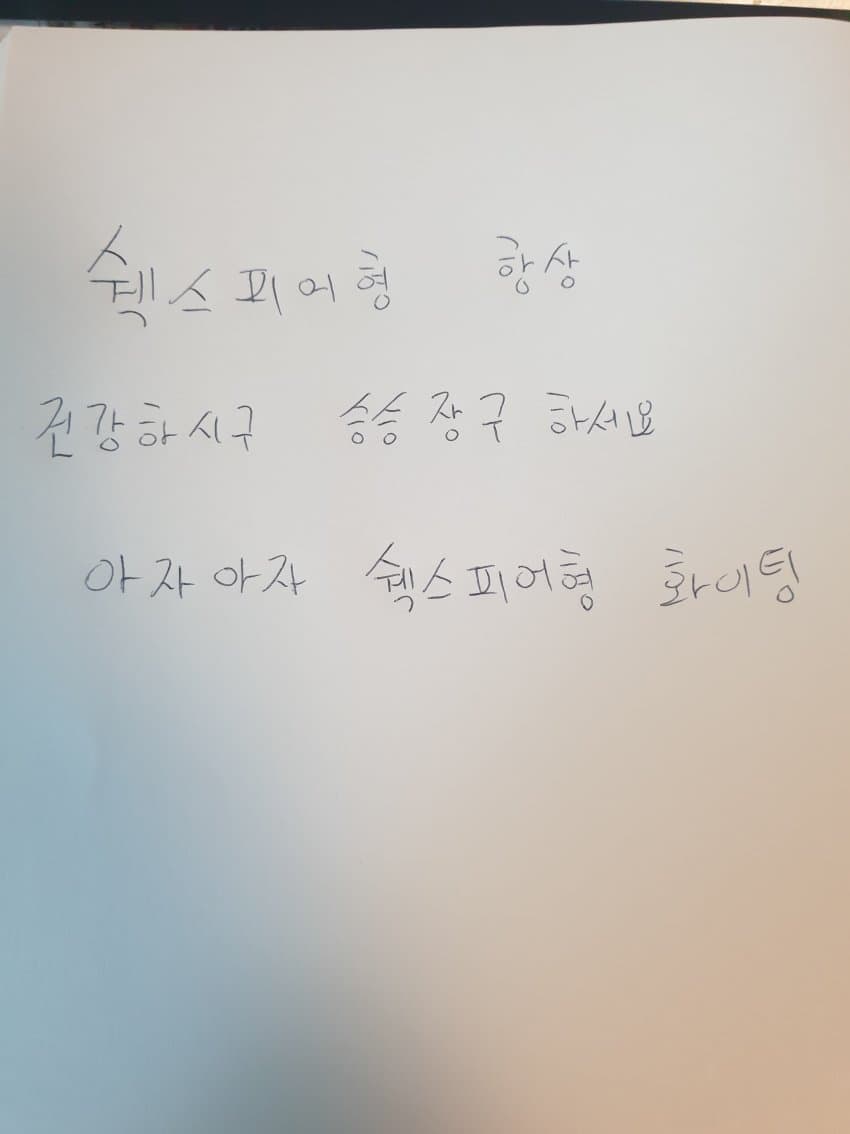 쉑스피어형 항상
건강하시구 승승장구 하세요
아자아자 쉑스피어형 화이팅